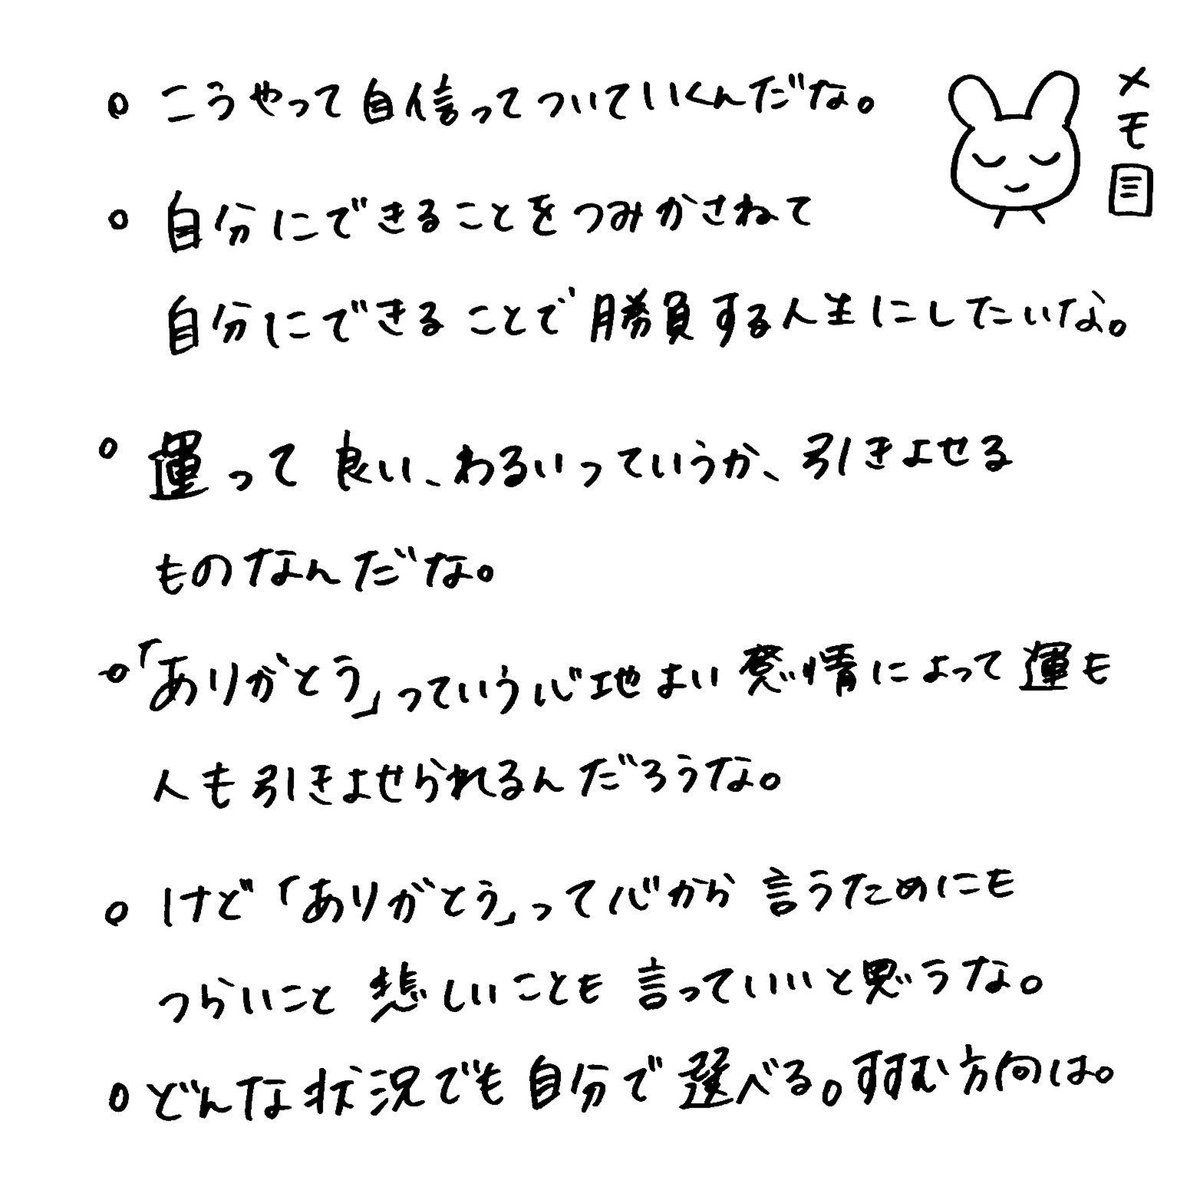 メモ
・こうやって自信ってついていくんだな。
・自分にできることをつみかさねて
自分にできることで勝負する人生にしたいな。
・運って良い、わるいっていうか、引きよせる
ものなんだな。
・「ありがとう」っていう心地よい感情によって運も
人も引きよせられるんだろうな。
・けど「ありがとう」って心から言うためにも
つらいこと悲しいことも言っていいと思うな。
・どんな状況でも自分で選べる。すすむ方向は。